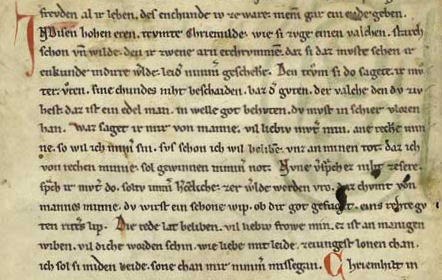 freuden al ir leben. des enchunde ir ze ware. niem̄ gar ein ende geben.
In disen hohen eren. tromte Chriemilde. wie si zvge einen valchen. starch
schon vn̄ wilde. den ir zwene arn erchrvmmen. daz si daz mvste sehen ir
enkunde in dirre werlde. leid' nimm' geschehe. Den trŏm si do sagete. ir mv̊
ter ŏten. sine chundes niht bescheiden. baz d' gvten. der valche den dv ziv
hest daz ist ein edel man. in welle got behvten. dv mvst in schier vloren
han. Waz saget ir mir von manne. vil liebiv mvt' min. ane recken min
ne. so wil ich im̄ sin. svs schon ich wil beliben. vnz an minen tot. daz ich
von rechen minne. sol gewinnen nimm' not. Nvne v'sp'ch ez niht ze sere.
sp'ch ir mvt' do. soltv im̄ h'celiche. zer w'lde werden vro. daz chvmt von
mannes minne. dv wirst ein schone wip. ob dir got gefuget. eins rehte gv
ten ritt's lip. Die rede lat beliben. vil liebiv frowe min. ez ist an manigen
wiben. vil diche worden schin. wie liebe mit leide. ze iungest lonen chan.
ich sol si miden beide. sone chan mir nimm' missegan. Chriemhilt in